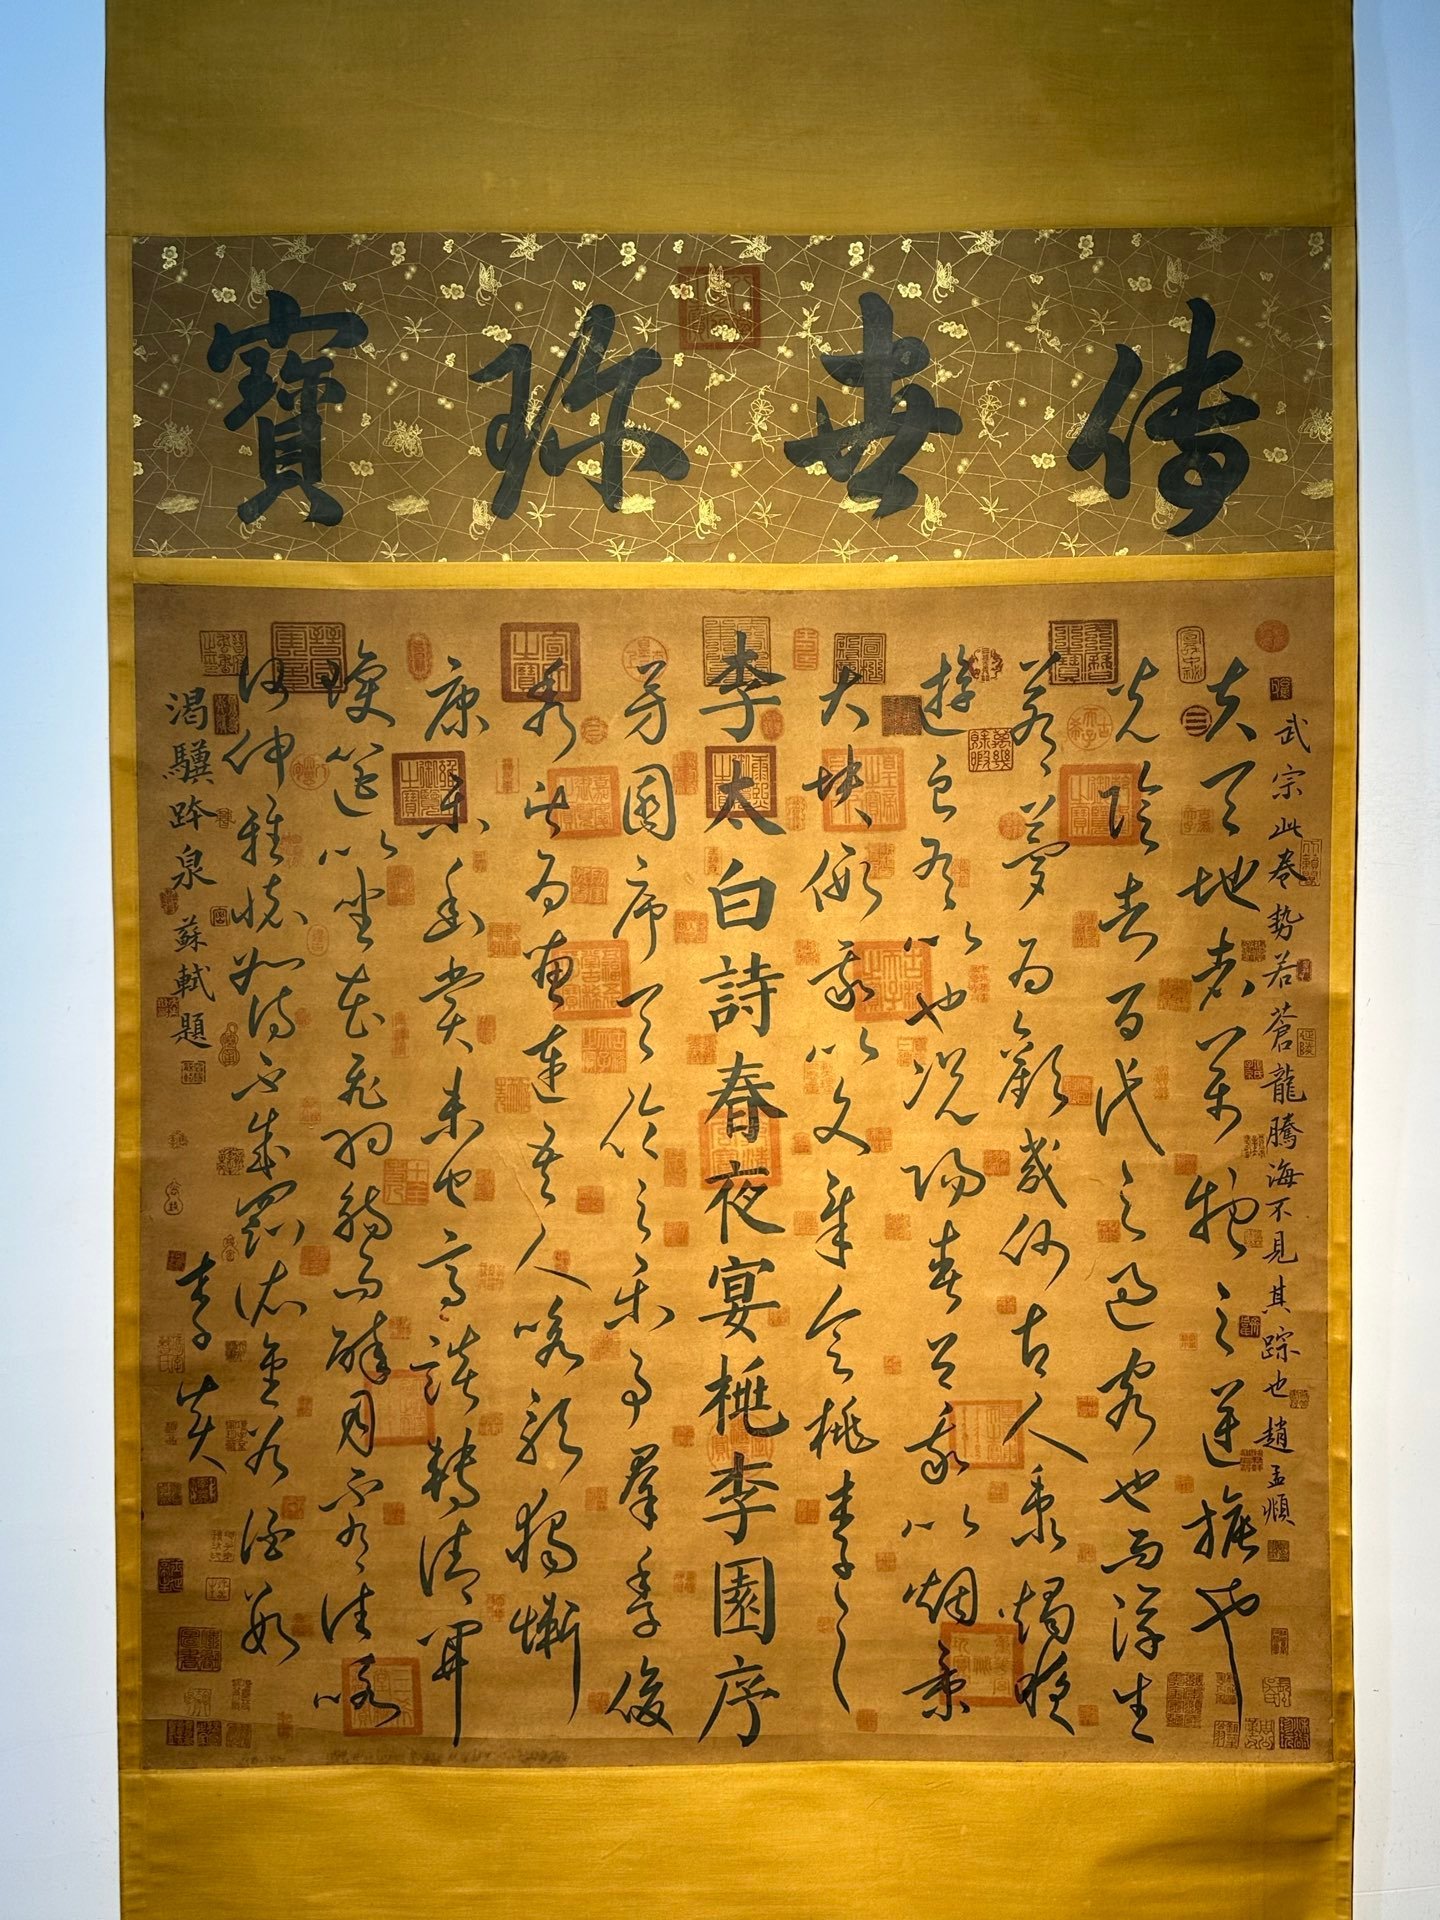 傳世珍寶
武宗此卷勢若蒼龍騰海不見其踪也趙孟頫
夫天地者萬物之逆旅也
光陰者百代之過客也而浮生
若夢為歡幾何古人秉燭夜
遊良有以也況陽春召我以烟景
大塊假我以文章會桃李之
李太白詩春夜宴桃李園序
芳園序天倫之樂事羣季俊
秀皆為惠連吾人咏歌獨慚
康樂幽賞未已高談轉清開
瓊筵以坐花飛羽觴而醉月不有佳咏
何伸雅懷如詩不成罰依金谷酒數
李炎
渴驥跨泉蘇軾題